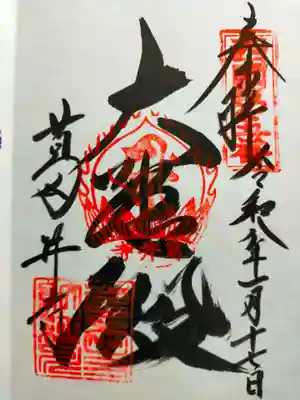 奉拝
令和八年一月十七日
大悲殿
葛井寺